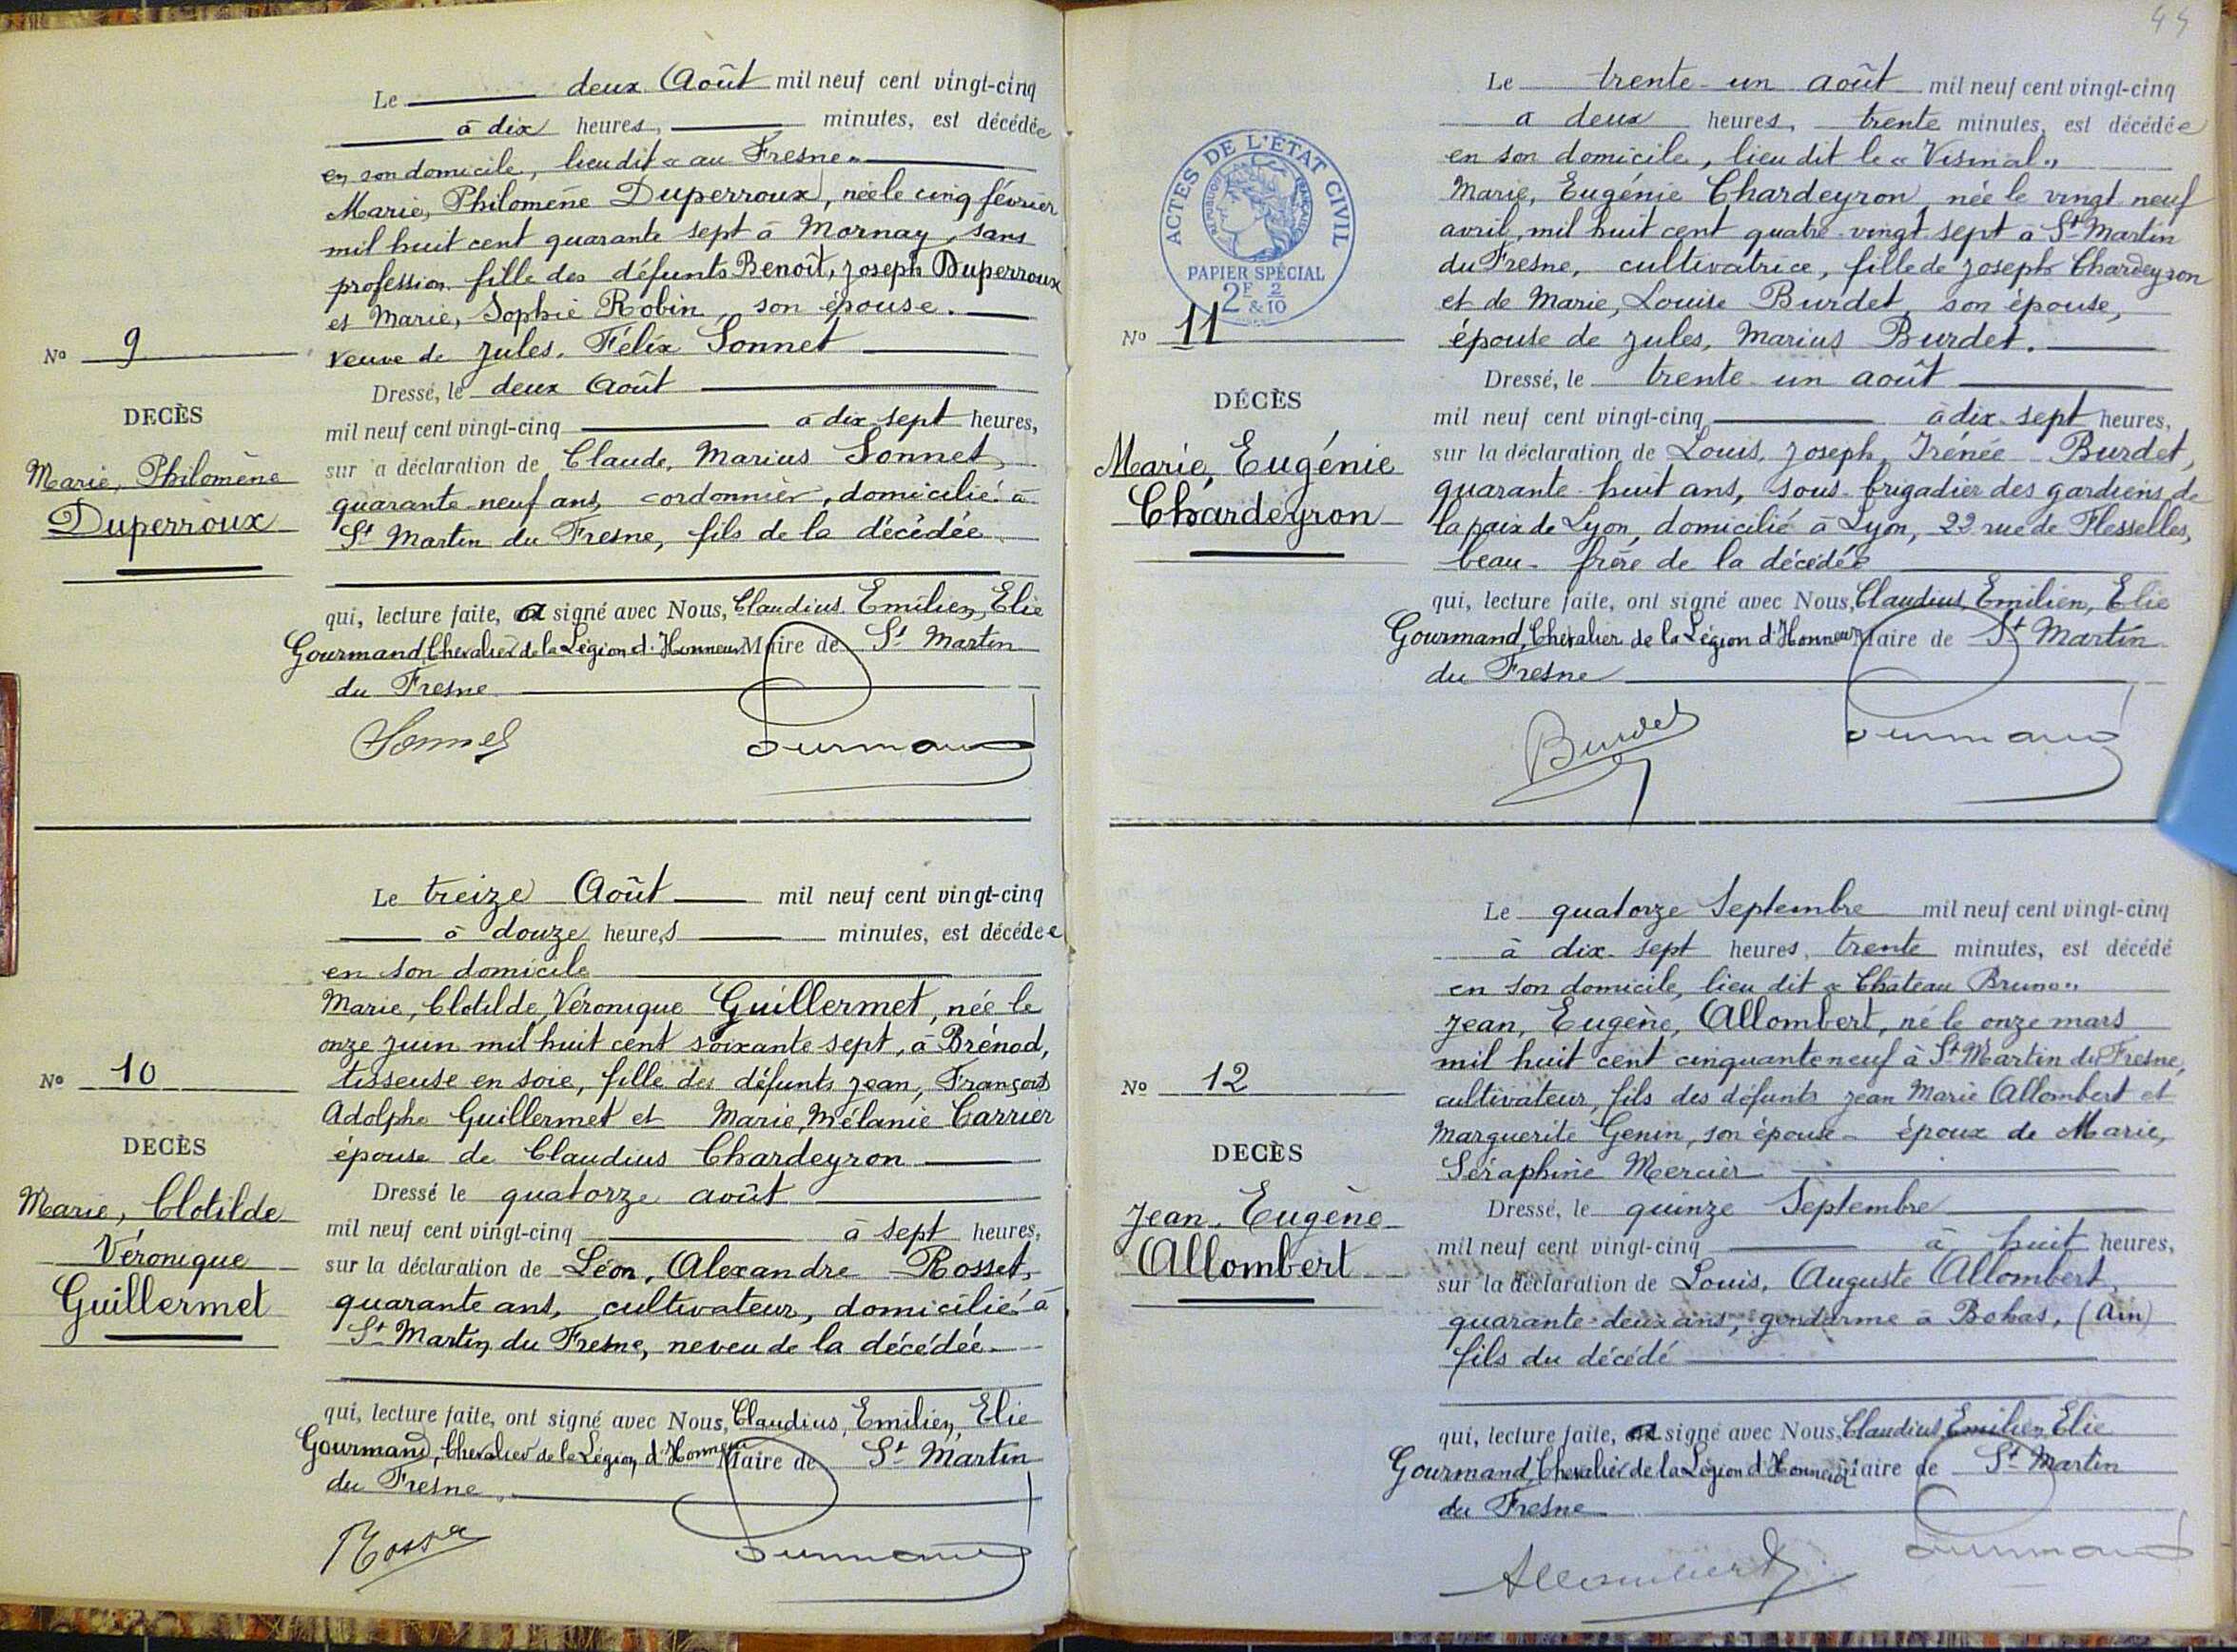 Le deux Août mil neuf cent vingt-cinq
à dix heures, minutes, est décédée
en son domicile, lieu dit « au Fresne »
Marie, Philomène Duperroux, née le cinq février
mil huit cent quarante sept à Mornay, sans
profession fille des défunts Benoît, Joseph Duperroux
et Marie, Sophie Robin, son épouse.
veuve de Jules, Félix Sonnet
No 9
DECÈS
Marie, Philomène
Duperroux
Dressé, le deux Août
mil neuf cent vingt-cinq à dix sept heures,
sur a déclaration de Claude, Marius Sonnet,
quarante-neuf ans, cordonnier, domicilié à
St Martin du Fresne, fils de la décédée
qui, lecture faite, a signé avec Nous, Claudius, Emilien, Elie
Gourmand, Chevalier de la Légion d'Honneur Maire de St Martin
du Fresne
Sonnet
Gourmand
Le treize Août mil neuf cent vingt-cinq
à douze heures minutes, est décédée
en son domicile
Marie, Clotilde, Véronique Guillermet, née le
onze juin mil huit cent soixante sept, à Brénod,
tisseuse en soie, fille des défunts Jean, François
Adolphe Guillermet et Marie, Mélanie Carrier
épouse de Claudius Chardeyron
No 10
DECÈS
Marie, Clotilde
Véronique
Guillermet
Dressé le quatorze août
mil neuf cent vingt-cinq à sept heures,
sur la déclaration de Léon, Alexandre Rosset,
quarante ans, cultivateur, domicilié à
St Martin du Fresne, neveu de la décédée
qui, lecture faite, ont signé avec Nous, Claudius, Emilien, Elie
Gourmand, Chevalier de la Légion d'Honneur Maire de St Martin
du Fresne
Rosset
Gourmand
44
ACTES DE L'ETAT CIVIL
REPUBLIQUE FRANÇAISE
PAPIER SPÉCIAL
2F & 2/10
Le trente-un août mil neuf cent vingt-cinq
à deux heures, trente minutes, est décédée
en son domicile, lieu dit le « Visinal »
Marie, Eugénie Chardeyron née le vingt neuf
avril, mil huit cent quatre-vingt-sept à St Martin
du Fresne, cultivatrice, fille de Joseph Chardeyron
et de Marie, Louise Burdet, son épouse,
épouse de Jules, Marius Burdet.
No 11
DÉCÈS
Marie, Eugénie
Chardeyron
Dressé, le trente-un août
mil neuf cent vingt-cinq à dix-sept heures,
sur la déclaration de Louis, Joseph, Irénée Burdet,
quarante-huit ans, sous-brigadier des gardiens de
la paix de Lyon, domicilié à Lyon, 22 rue de Flesselles,
beau-frère de la décédée
qui, lecture faite, ont signé avec Nous, Claudius, Emilien, Elie
Gourmand, Chevalier de la Légion d'Honneur Maire de St Martin
du Fresne
Burdet
Gourmand
Le quatorze Septembre mil neuf cent vingt-cinq
à dix-sept heures, trente minutes, est décédé
en son domicile, lieu dit « Château Bruno »
Jean, Eugène, Allombert, né le onze mars
mil huit cent cinquante neuf à St Martin du Fresne,
cultivateur, fils des défunts Jean Marie Allombert et
Marguerite Genin, son épouse - époux de Marie,
Séraphine Mercier
No 12
DECÈS
Jean, Eugène
Allombert
Dressé, le quinze Septembre
mil neuf cent vingt-cinq à huit heures,
sur la déclaration de Louis, Auguste Allombert,
quarante-deux ans, gendarme à Bohas, (Ain)
fils du décédé
qui, lecture faite, a signé avec Nous, Claudius, Emilien, Elie
Gourmand, Chevalier de la Légion d'Honneur Maire de St Martin
du Fresne
Allombert
Gourmand